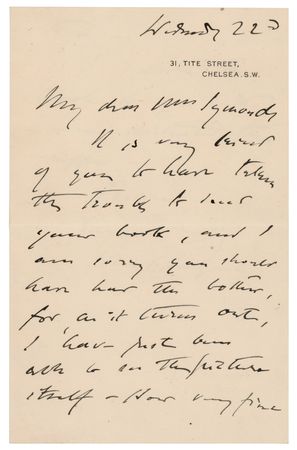 Wednesday 22d
31, TITE STREET,
CHELSEA. S.W.
My dear Mrs Symonds
It is very kind
of you to have taken
the trouble to send
your book, and I
am sorry you should
have had the bother,
for, as it turns out,
I have just been
able to see the picture
itself – How very fine